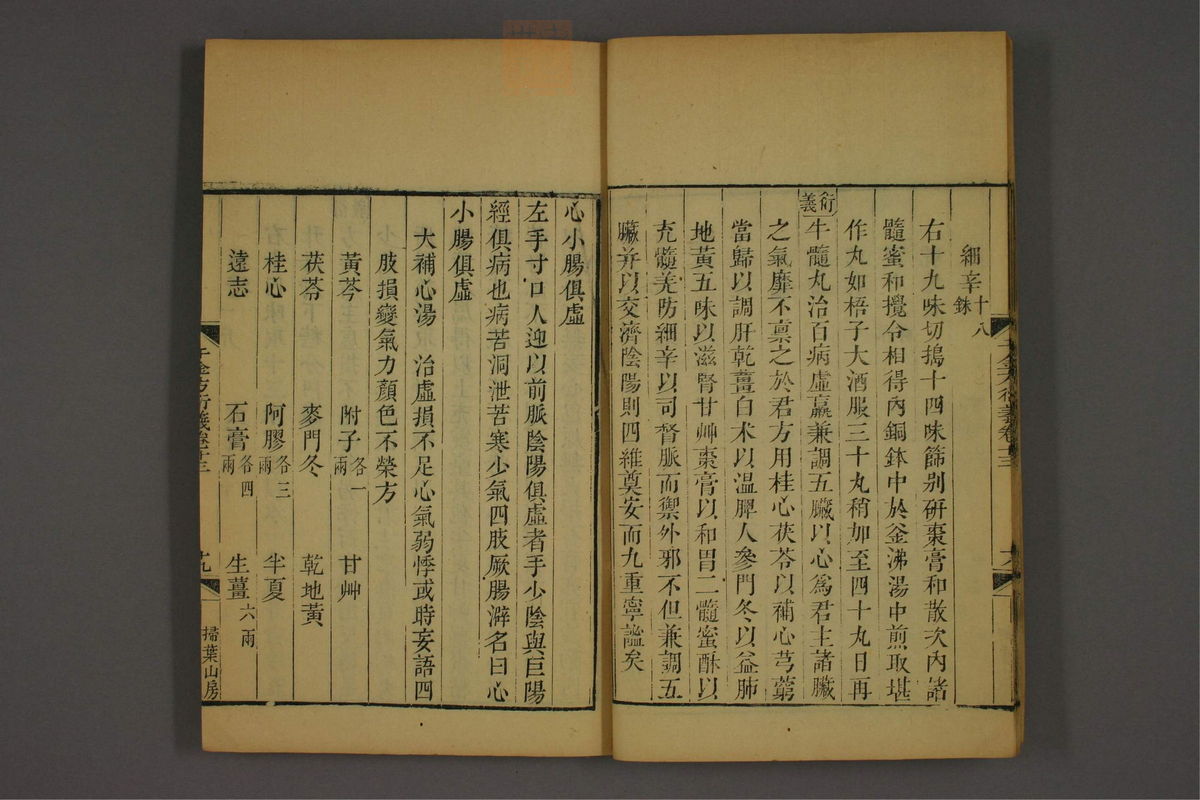 細辛十八銖
右十九味切搗十四味篩別研棗膏和散次內諸
髓蜜和攪令相得內銅鉢中於釜沸湯中煎取堪
作丸如梧子大酒服三十丸稍加至四十丸日再
衍義
牛髓丸治百病虛羸兼調五臟以心為君主諸臟
之氣靡不稟之於君方用桂心茯苓以補心芎藭
當歸以調肝乾薑白朮以溫脾人參門冬以益肺
地黃五味以滋腎甘艸棗膏以和胃二髓蜜酥以
充髓羌防細辛以司督脈而禦外邪不但兼調五
臟并以交濟陰陽則四維奠安而九重寧謐矣
心小腸俱虛
左手寸口人迎以前脈陰陽俱虛者手少陰與巨陽
經俱病也病苦洞泄苦寒少氣四肢厥腸澼名曰心
小腸俱虛
大補心湯 治虛損不足心氣弱悸或時妄語四
肢損變氣力顏色不榮方
黃芩 附子各一兩 甘艸
茯苓 麥門冬 乾地黃
桂心 阿膠各三兩 半夏
遠志 石膏各四兩 生薑六兩
千金方衍義卷十三 十九 掃葉山房